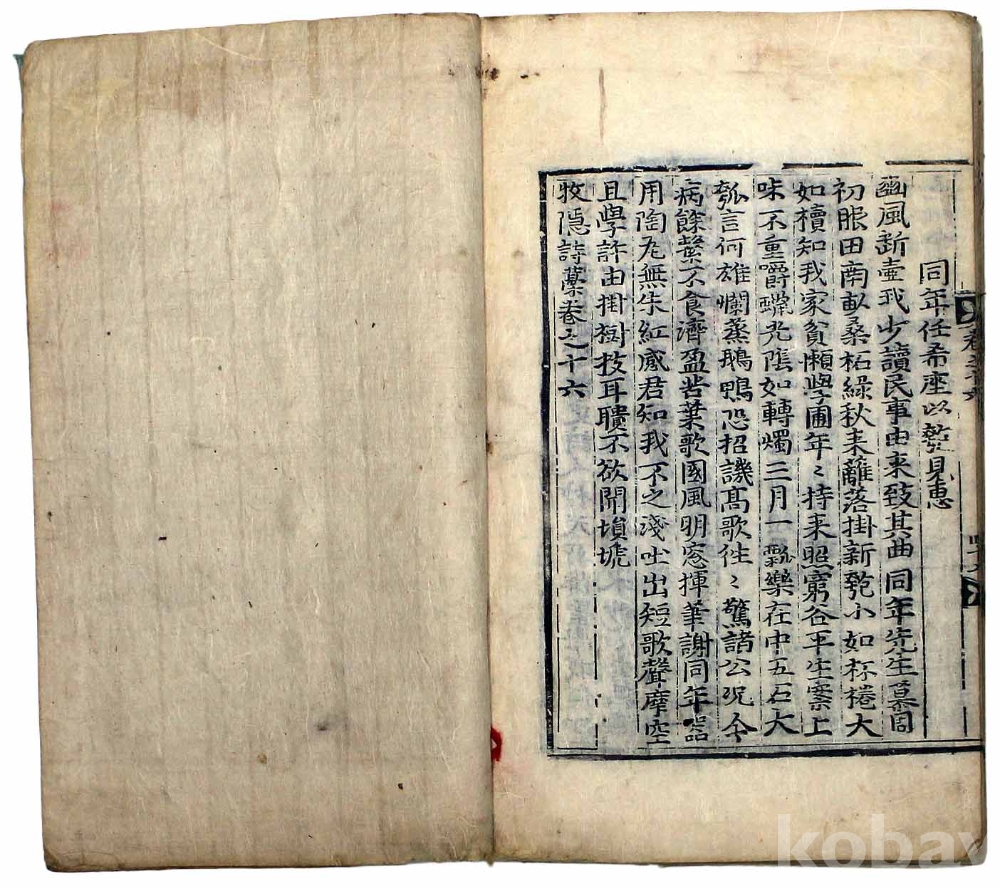 同年任希座以瓠見惠
豳風斷壺我少讀民事由來致其曲同年先生慕周
初眼田南畝桑柘綠秋来離落掛新瓠小如杯棬大
如櫝知我家貧懶學圃年〻持来照窮谷平生案上
味不重嚼蠟光陰如轉燭三月一瓢樂在中五石大
瓠言何雄爛蒸鵝鴨恐招譏高歌徃〻驚諸公况今
病餘繫不食濟盈苦葉歌國風明窓揮筆謝同年器
用陶匏無朱紅感君知我不之淺吐出短歌聲摩空
且學許由掛樹枝耳聵不欲聞塤箎
牧隱詩藁卷之十六
卷之十六
kobay